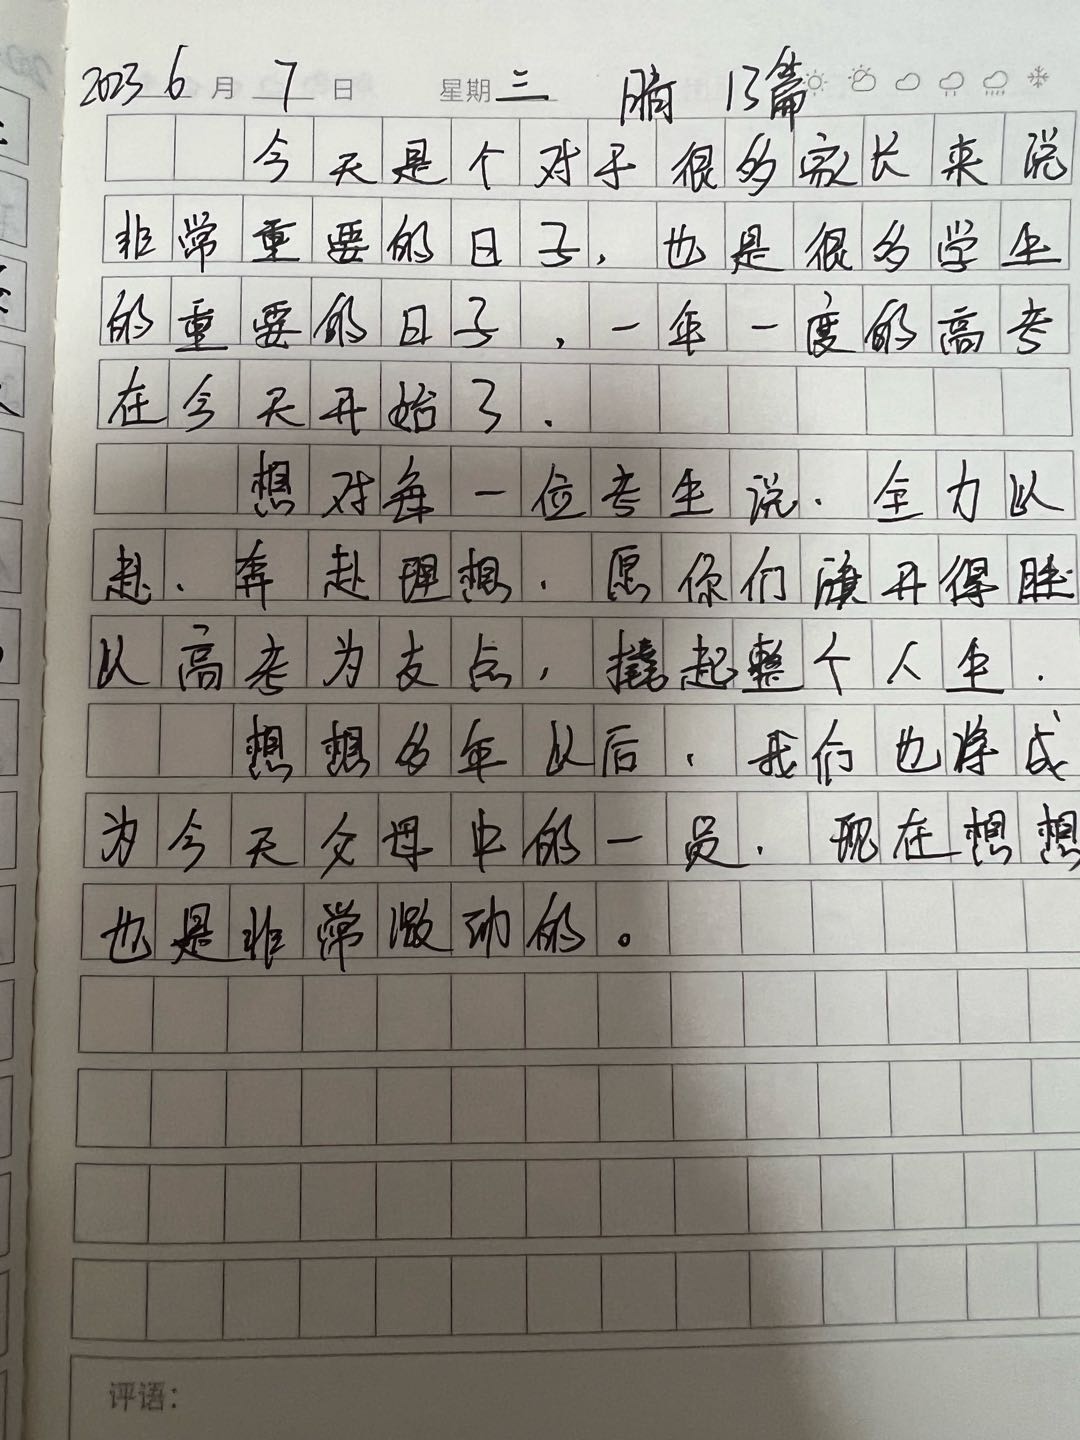 2023 6月7日 星期三 晴 13篇
今天是个对于很多家长来说
非常重要的日子,也是很多学生
的重要的日子,一年一度的高考
在今天开始了.
想对每一位考生说.全力以
赴.奔赴理想.愿你们旗开得胜
以高考为支点,撬起整个人生.
想想多年以后,我们也将成
为今天父母中的一员.现在想想
也是非常激动的。
评语: